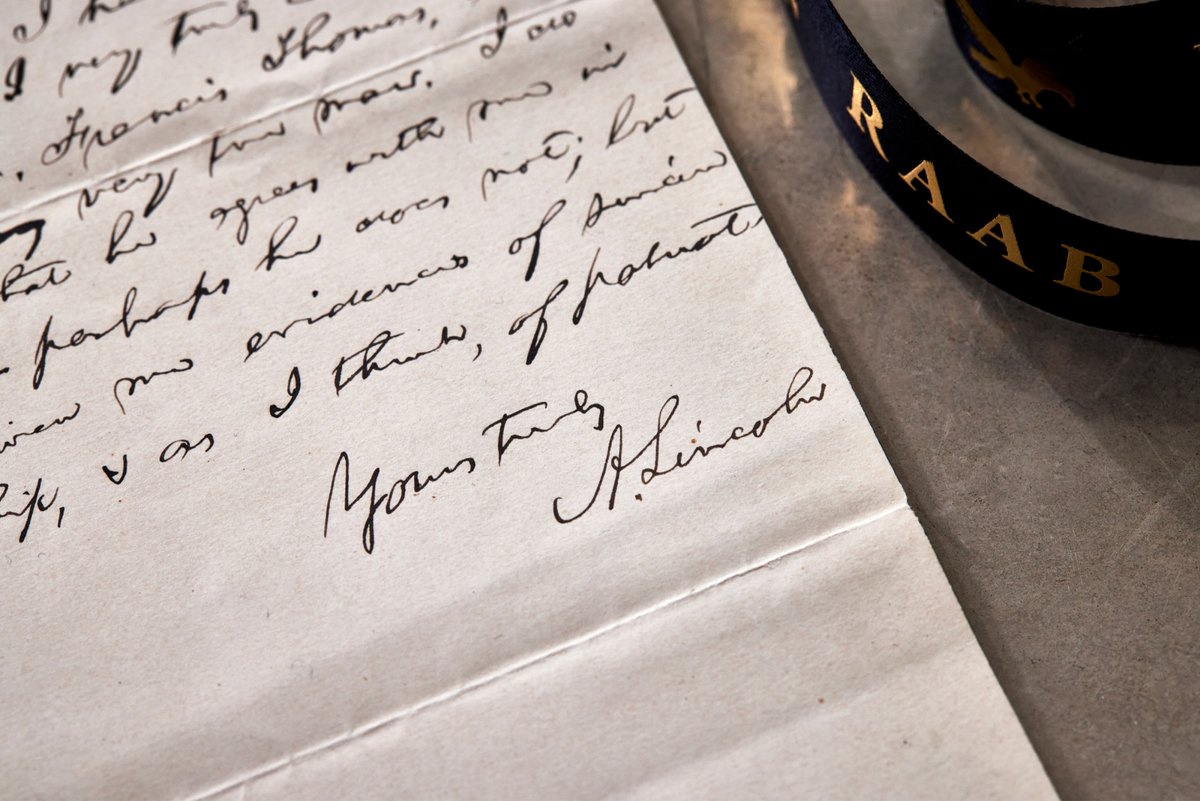 I ha
I very truly
Francis Thomas,
very few man. I do
that he agrees with me in
perhaps he does not; but
me evidences of sincere
, & as I think, of patriot
Yours truly
A. Lincoln
RAAB